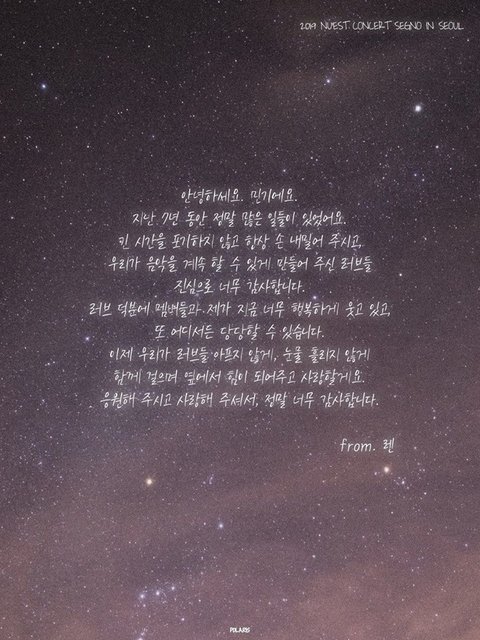 2019 NU'EST CONCERT SEGNO IN SEOUL
안녕하세요. 민기에요.
지난 7년 동안 정말 많은 일들이 있었어요.
긴 시간을 포기하지 않고 항상 손 내밀어 주시고,
우리가 음악을 계속 할 수 있게 만들어 주신 러브들
진심으로 너무 감사합니다.
러브 덕분에 멤버들과 제가 지금 너무 행복하게 웃고 있고,
또 어디서든 당당할 수 있습니다.
이제 우리가 러브들 아프지 않게, 눈물 흘리지 않게
함께 걸으며 옆에서 힘이 되어주고 사랑할게요.
응원해 주시고 사랑해 주셔서, 정말 너무 감사합니다.
from. 렌
POLARIS